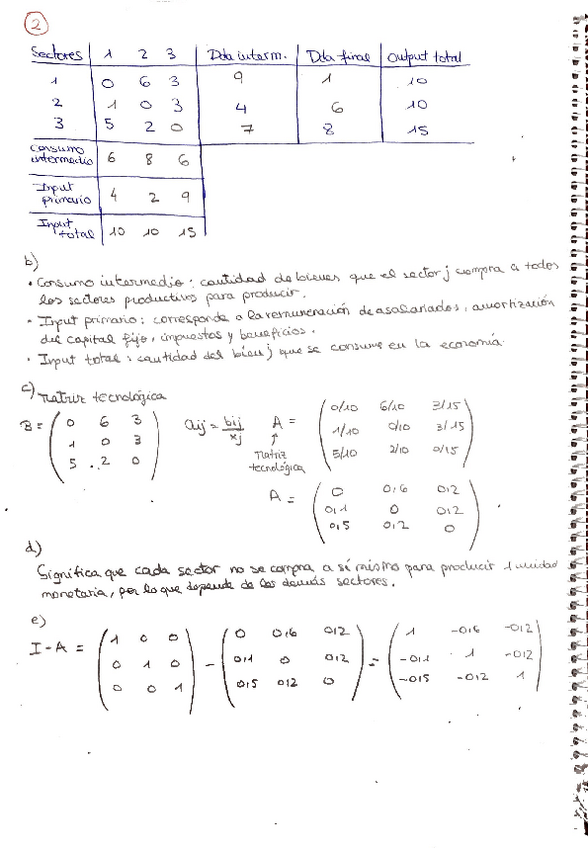 2
Sectores 1 2 3 Dda interm. Dda final Output total
1 0 6 3 9 1 10
2 1 0 3 4 6 10
3 5 2 0 7 8 15
Consumo intermedio 6 8 6
Input primario 4 2 9
Input total 10 10 15
b)
• Consumo intermedio: cantidad de bienes que el sector j compra a todos
los sectores productivos para producir.
• Input primario: corresponde a la remuneración de asalariados, amortización
del capital fijo, impuestos y beneficios.
• Input total: cantidad del bien j que se consume en la economía.
c) Matriz tecnológica
B = ( 0 6 3 aij = bij/xj A = ( 0/10 6/10 3/15
1 0 3 ↑ 1/10 0/10 3/15
5 2 0 ) Matriz tecnológica 5/10 2/10 0/15 )
A = ( 0 0'6 0'2
0'1 0 0'2
0'5 0'2 0 )
d)
Significa que cada sector no se compra a sí mismo para producir 1 unidad
monetaria, por lo que depende de los demás sectores.
e)
I - A = ( 1 0 0 ) - ( 0 0'6 0'2 ) = ( 1 -0'6 -0'2 )
( 0 1 0 ) ( 0'1 0 0'2 ) ( -0'1 1 -0'2 )
( 0 0 1 ) ( 0'5 0'2 0 ) ( -0'5 -0'2 1 )